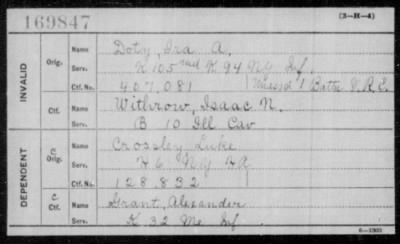 169847
(3-H-4)
INVALID
Orig.
Name Doty, Ira A.
Serv. K 105 and K 94 NY Inf.
Ctf. No. 407,081 1 Batta V.R.C.
Ctf.
Name Withrow, Isaac N.
Serv. B 10 Ill Cav
DEPENDENT
C.
Orig.
Name Crossley, Luke
Serv. H 6 NY HA
Ctf. No. 128,832
C.
Ctf.
Name Grant, Alexander
Serv. K 32 Me Inf